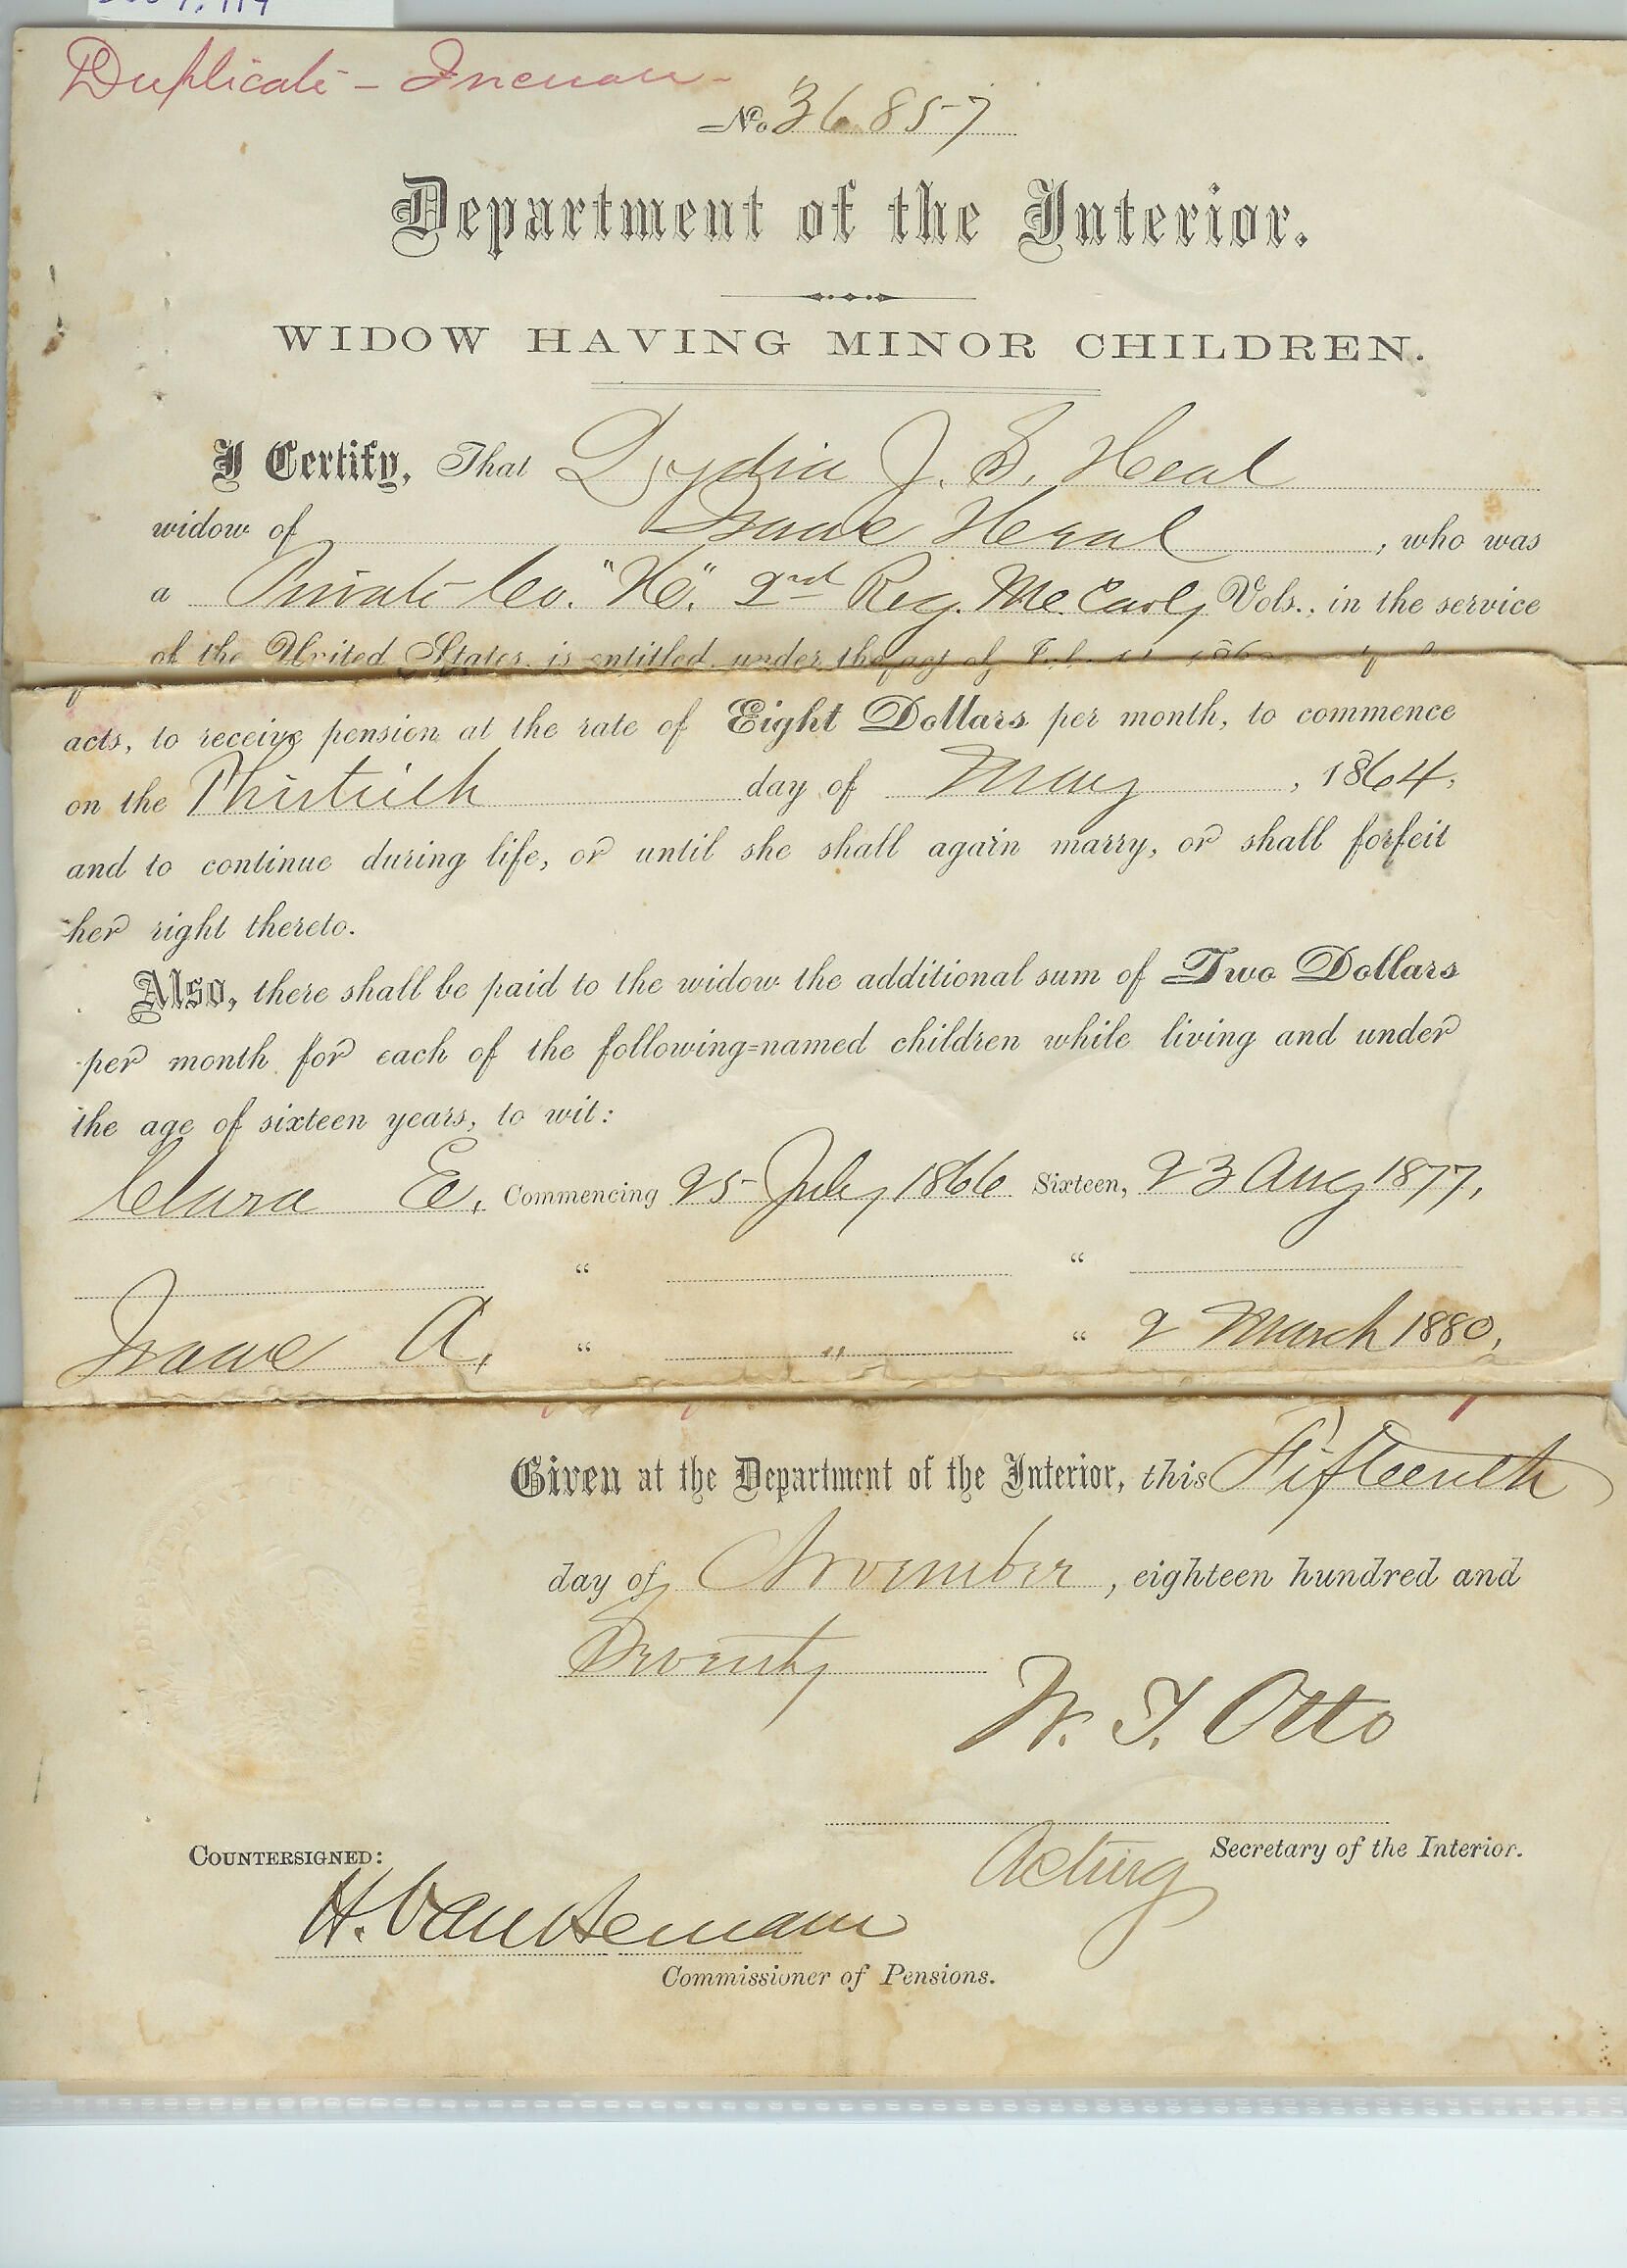 Duplicate - Increase -
No. 36.857
Department of the Interior.
WIDOW HAVING MINOR CHILDREN.
I Certify, That Lydia J. S. Heal
widow of Isaac Heral, who was
a Private Co. "K". 2nd Reg. Me. Cavly Vols., in the service
of the United States, is entitled, under the act of
acts, to receive pension at the rate of Eight Dollars per month, to commence
on the Thirtieth day of May, 1864,
and to continue during life, or until she shall again marry, or shall forfeit
her right thereto.
Also, there shall be paid to the widow the additional sum of Two Dollars
per month for each of the following=named children while living and under
the age of sixteen years, to wit:
Clara E. Commencing 25 July 1866 Sixteen, 23 Aug 1877,
" "
Isaac A. " " " 2 March 1880,
Given at the Department of the Interior, this Fifteenth
day of November, eighteen hundred and
Seventy
W. T. Otto
Acting Secretary of the Interior.
COUNTERSIGNED:
H. Van Aernam
Commissioner of Pensions.